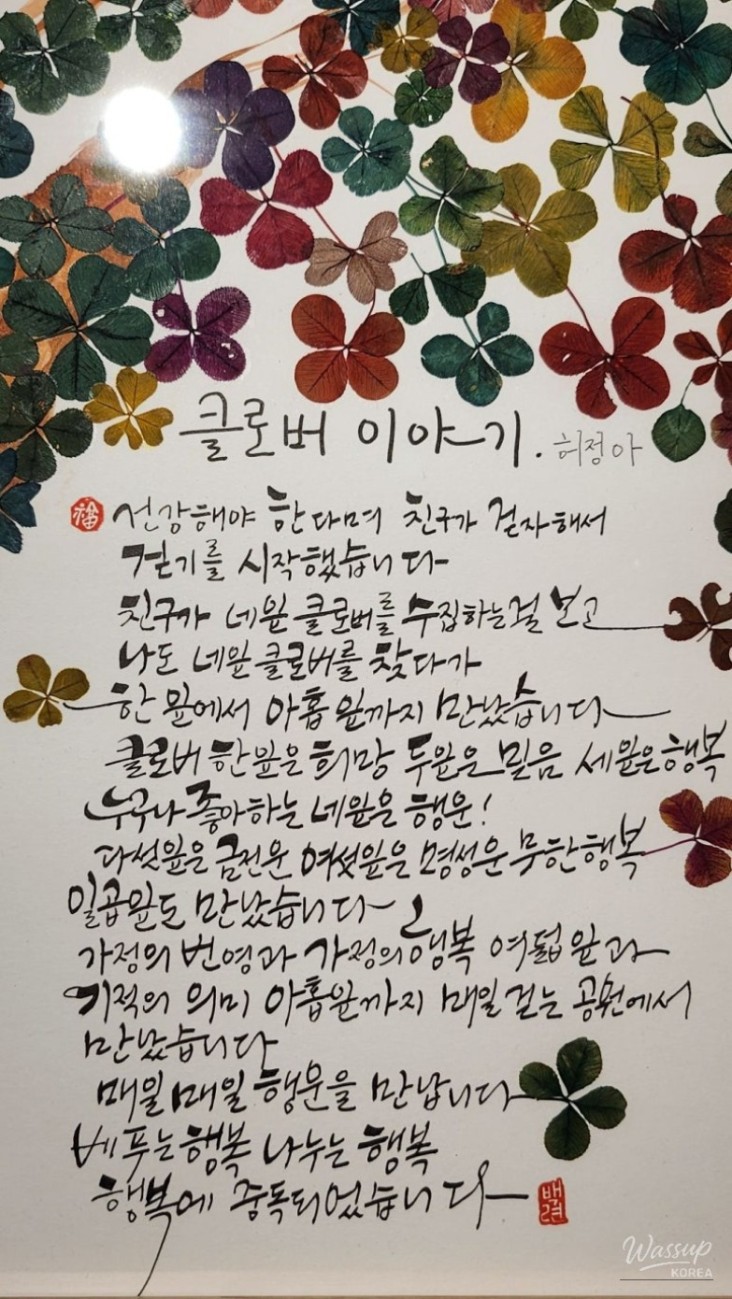 클로버 이야기. 허정아
福 건강해야 한다며 친구가 걷자해서
걷기를 시작했습니다
친구가 네잎 클로버를 수집하는걸 보고
나도 네잎 클로버를 찾다가
한 잎에서 아홉 잎까지 만났습니다
클로버 한잎은 희망 두잎은 믿음 세잎은 행복
누구나 좋아하는 네잎은 행운!
다섯잎은 금전운 여섯잎은 명성운 무한행복
일곱잎도 만났습니다
가정의 번영과 가정의 행복 여덟 잎과
기적의 의미 아홉잎까지 매일 걷는 공원에서
만났습니다
매일매일 행운을 만납니다
베푸는 행복 나누는 행복
행복에 중독되었습니다
백련
Wassup
KOREA